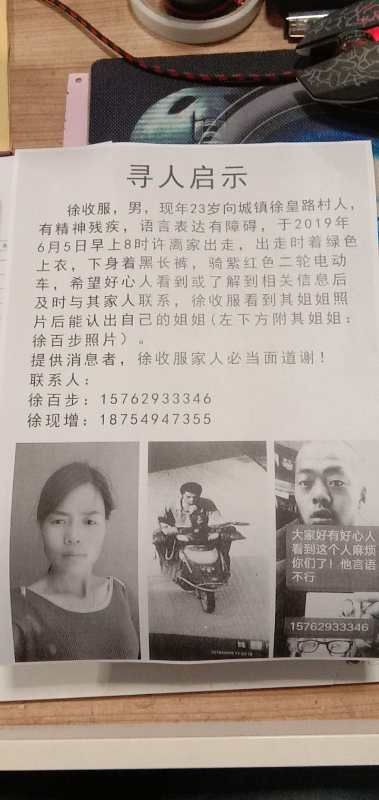 寻人启示
徐收服，男，现年23岁向城镇徐皇路村人，
有精神残疾，语言表达有障碍，于2019年
6月5日早上8时许离家出走，出走时着绿色
上衣，下身着黑长裤，骑紫红色二轮电动
车，希望好心人看到或了解到相关信息后
及时与其家人联系，徐收服看到其姐姐照
片后能认出自己的姐姐(左下方附其姐姐：
徐百步照片）。
提供消息者，徐收服家人必当面道谢！
联系人：
徐百步：15762933346
徐现增：18754947355
大家好有好心人
看到这个人麻烦
你们了！他言语
不行
15762933346